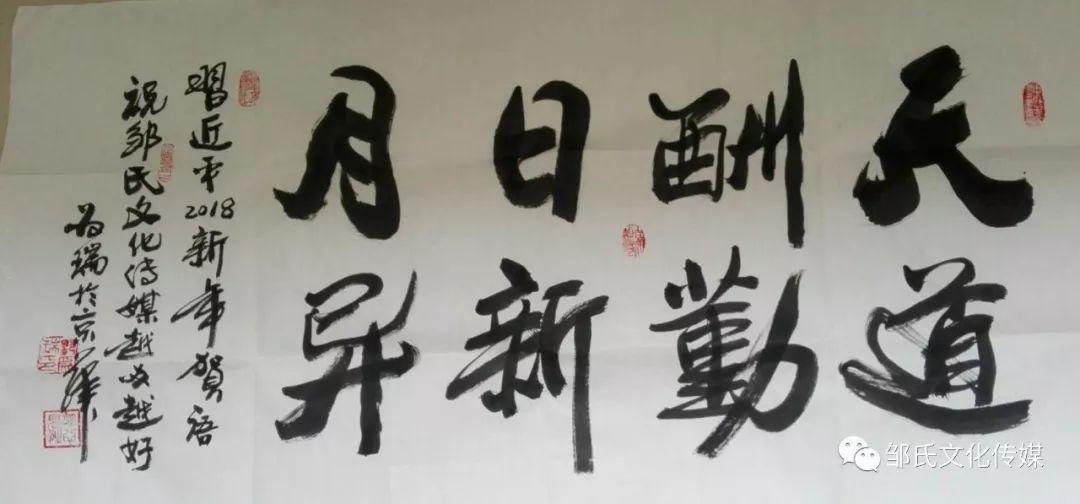 天道
酬勤
日新
月异
習近平2018新年贺语
祝邹氏文化传媒越办越好
瑞於京
邹氏文化传媒